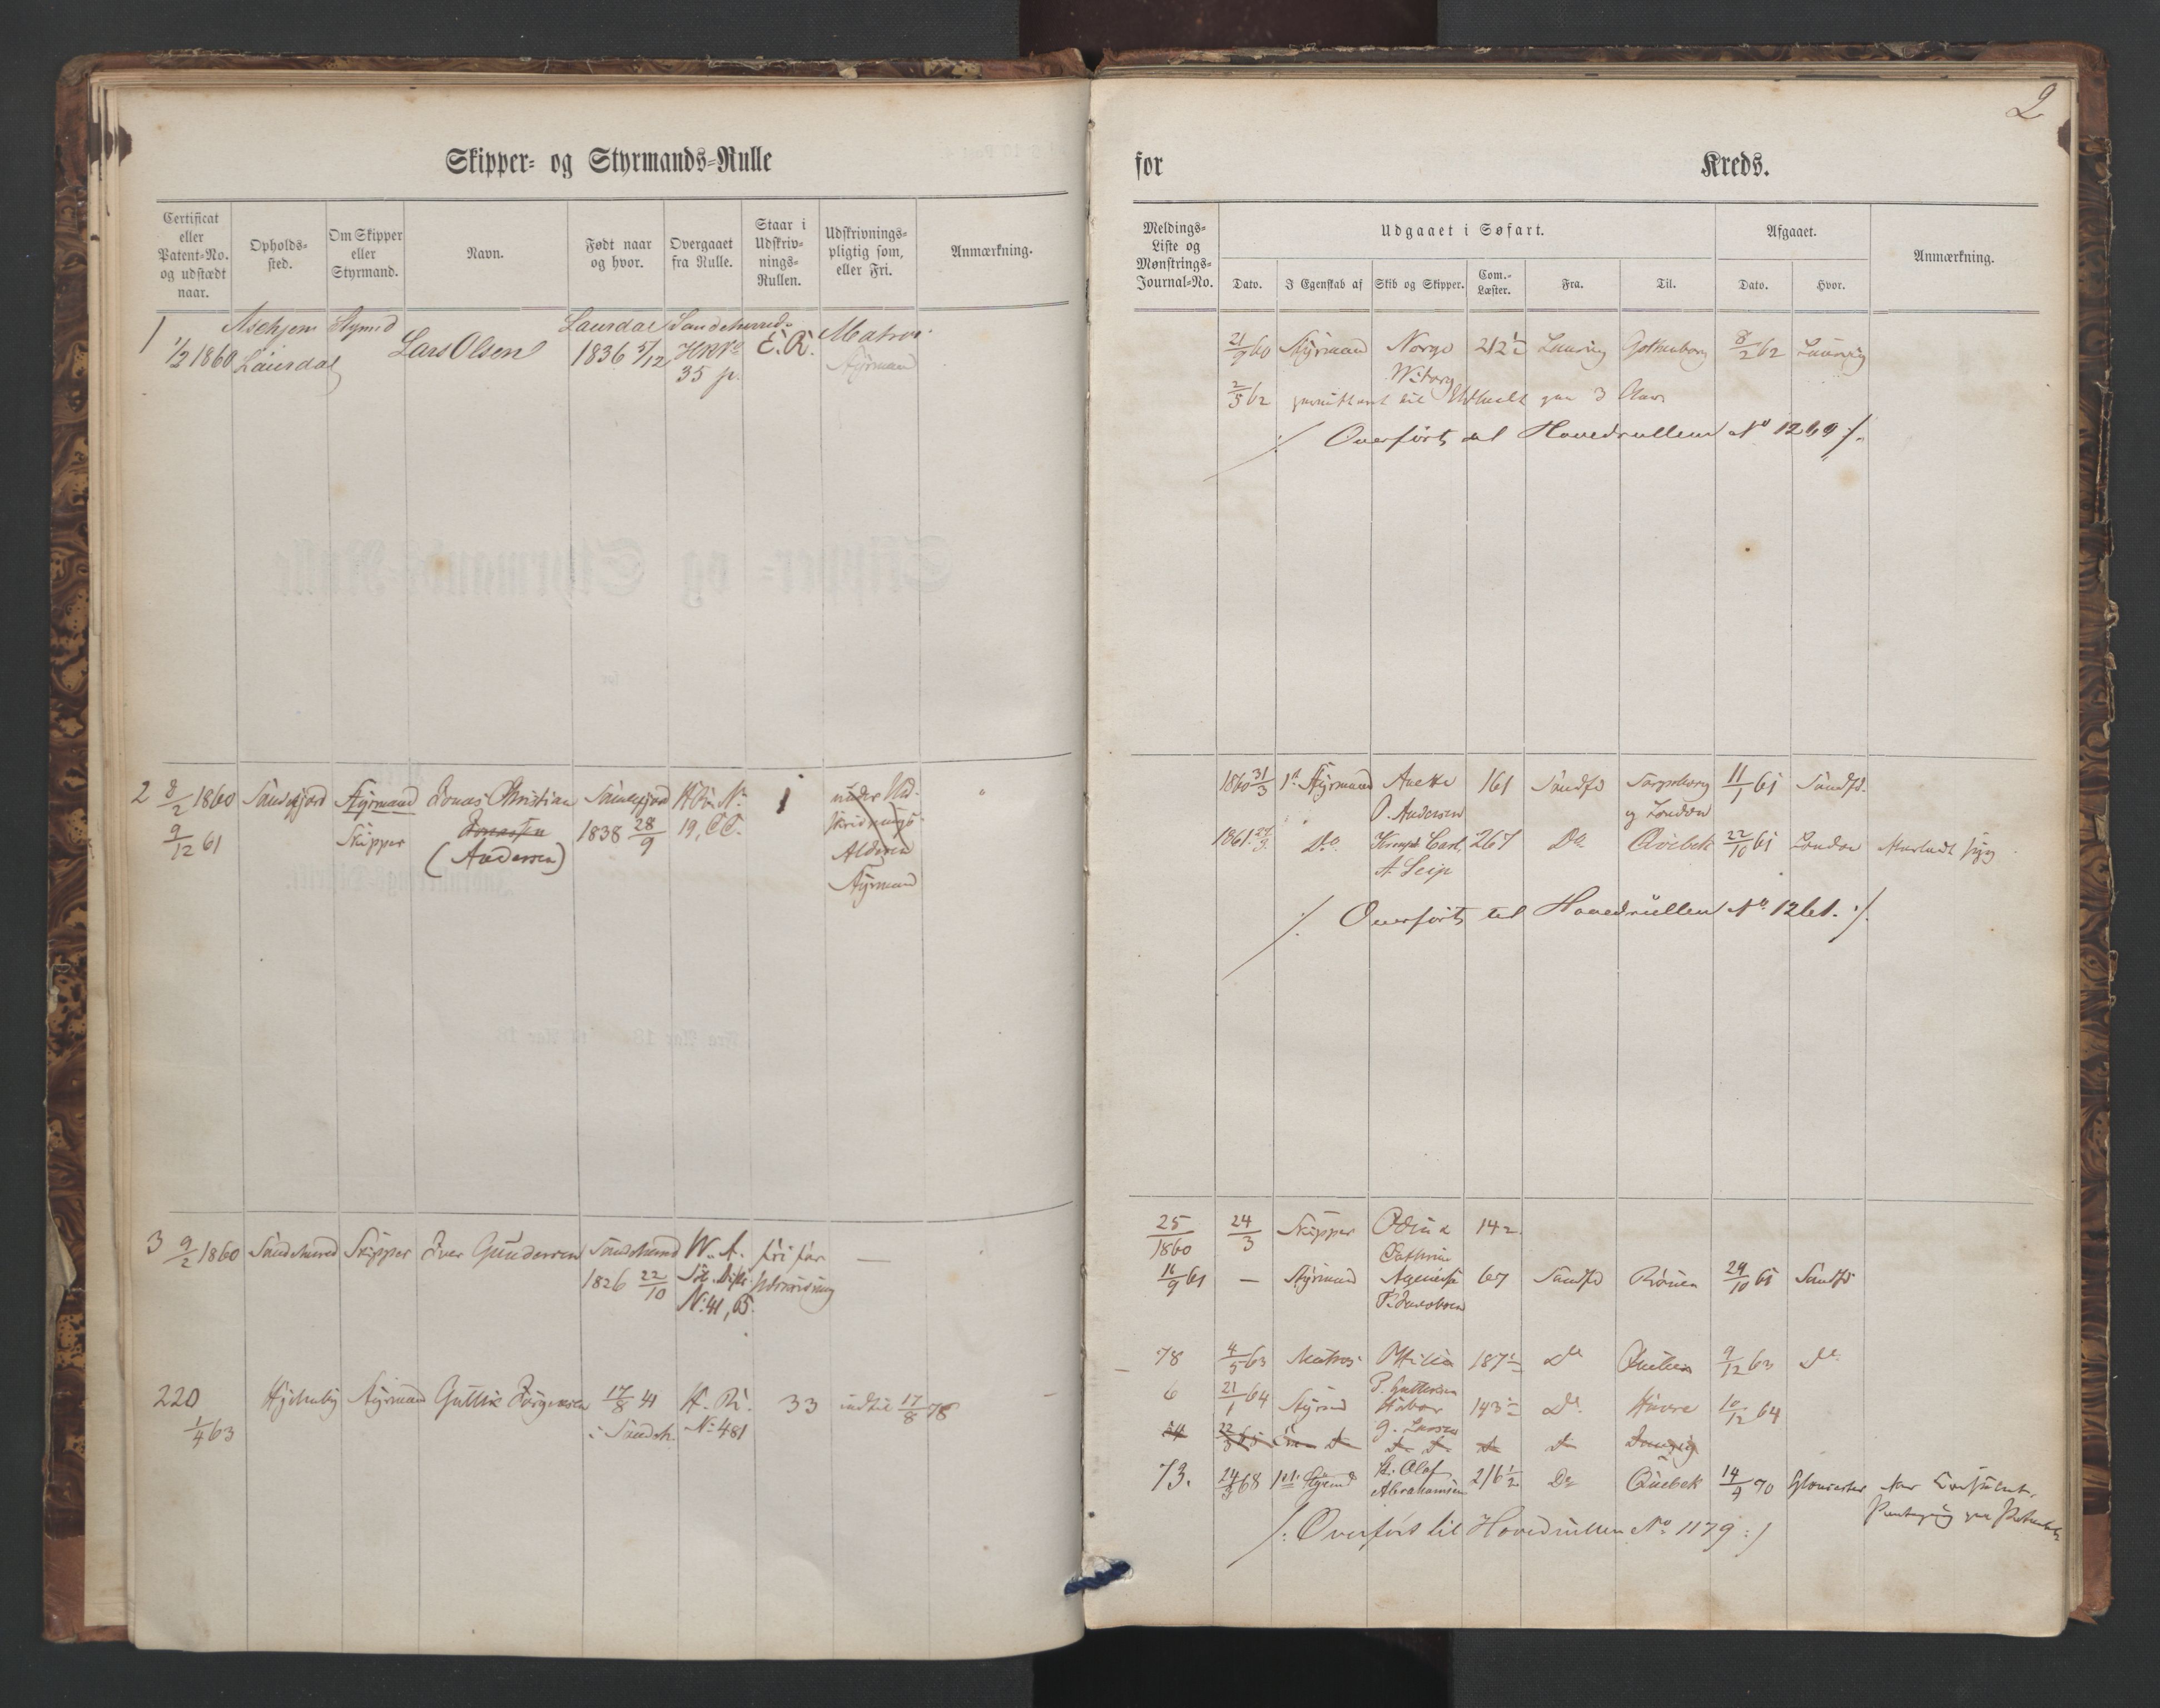 Skipper- og Styrmands-Rulle
Certificat eller Patent-No. og udstædt naar.
Opholds-sted.
Om Skipper eller Styrmand.
Navn.
Født naar og hvor.
Overgaaet fra Rulle.
Staar i Udskriv-nings-Rullen.
Udskrivnings-pligtig som, eller Fri.
Anmærkning.
1 1/2 1860 Laurdal Lars Olsen Laurdal 1836 5/12 Sandeherred 35 p. E. R. Matros Styrmand
2 8/2 1860 Sandefjord Styrmand Jonas Christian Sandefjord
9/12 61 Skipper Jonassen 1838 28/9 19,
(Andersen) Alderen
Styrmand
3 9/2 1860 Sandeherred Skipper Iver Gundersen Sandeherred W. A. fri for —
1826 22/10 No 41, 65. Udskrivning
220 Styrmand Guttic Jørgensen 17/8 41 H. R. 33 indtil 17/8 78
1/4 63 i Sandeh. No 481
2
for Kreds.
Meldings-Liste og Mønstrings-Journal-No.
Udgaaet i Søfart.
Dato.
I Egenskab af
Skib og Skipper.
Com.-Læster.
Fra.
Til.
Afgaaet.
Dato.
Hvor.
Anmærkning.
21/9 60 Styrmand Norge 212½ Laurvig Gothenborg 8/2 62 Laurvig
2/5 62 til paa 3 Aar
/: Overført til Hovedrullen No 1269 :/.
1860 31/3 1st Styrmand Anette 161 Sandfd Sarpsborg 11/1 61 Sandfd.
O. Andersen og London
1861 Do. 267 Do Qvebek 22/10 61 London syg
A Seip
/: Overført til Hovedrullen No 1261. :/.
25/1860 24/3 Skipper Odin & 142
Cathrine
16/9 61 — Styrmand 67 Sandfd Rouen 29/10 61 Sandfd
P. Jacobsen
78 4/5 63 Matros Ottilia 187½ Do 9/12 63 Do
6 21/1 64 Styrmd 143½ Do. Havre 10/12 64
G. Larsen
Danzig
73. 24/3 68 1st Styrmd St. Olaf 216½ Do Quebek 14/9 70 Gloucester
Abrahamsen
/: Overført til Hovedrullen No 1179 :/